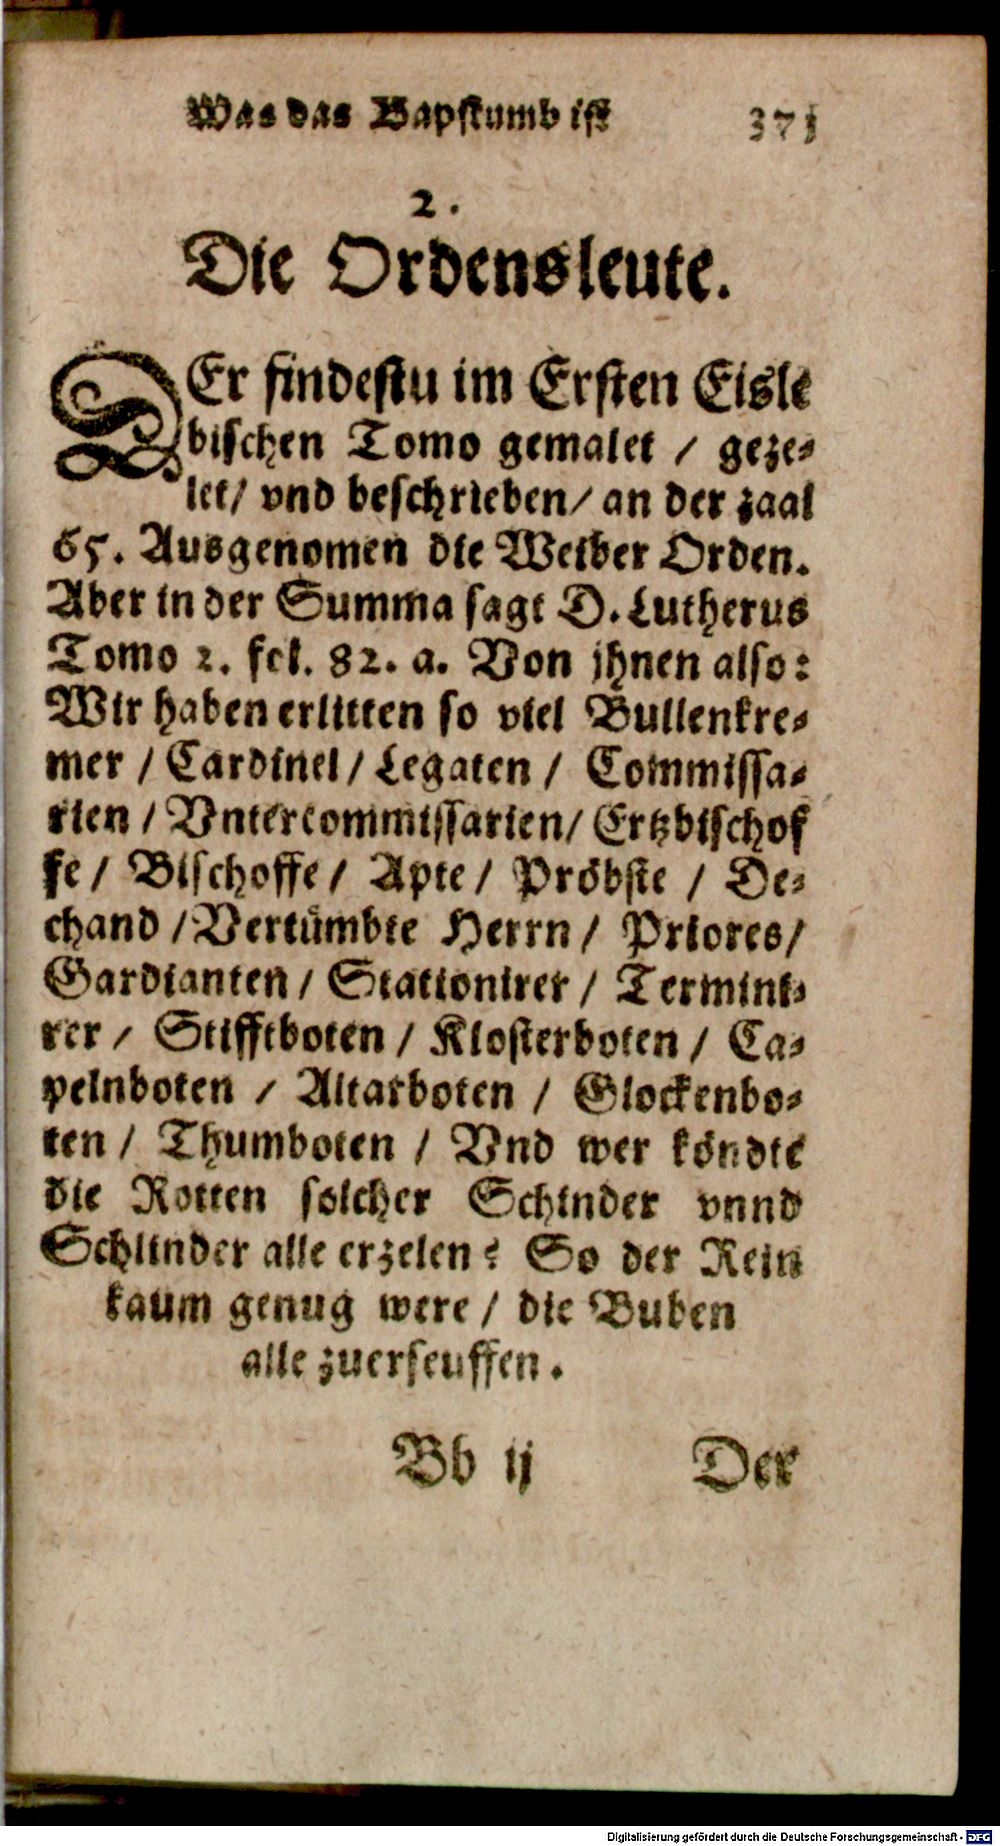 Was das Bapstumb ist 371
2.
Die Ordensleute.
DEr findestu im Ersten Eisle
bischen Tomo gemalet / geze-
let / vnd beschrieben / an der zaal
65. Ausgenomen die Weiber Orden.
Aber in der Summa sagt D. Lutherus
Tomo 2. fol. 82. a. Von jhnen also:
Wir haben erlitten so viel Bullenkre-
mer / Cardinel / Legaten / Commissa-
rien / Vntercommissarien / Ertzbischof
fe / Bischoffe / Apte / Pröbste / De-
chand / Vertümbte Herrn / Priores /
Gardianten / Stationirer / Termini-
rer / Stifftboten / Klosterboten / Ca-
pelnboten / Altarboten / Glockenbo-
ten / Thumboten / Vnd wer köndte
die Rotten solcher Schinder vnnd
Schlinder alle erzelen? So der Rein
kaum genug were / die Buben
alle zuerseuffen.
Bb ij Der
Digitalisierung gefördert durch die Deutsche Forschungsgemeinschaft - DFG